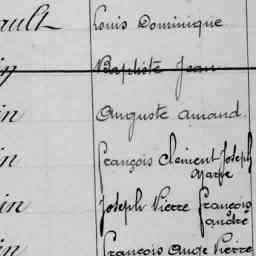 ault Louis Dominique
in Baptiste Jean
in Auguste amand.
in François Clément Joseph
Marie
in Joseph Pierre François
andré
in François Ange Pierre